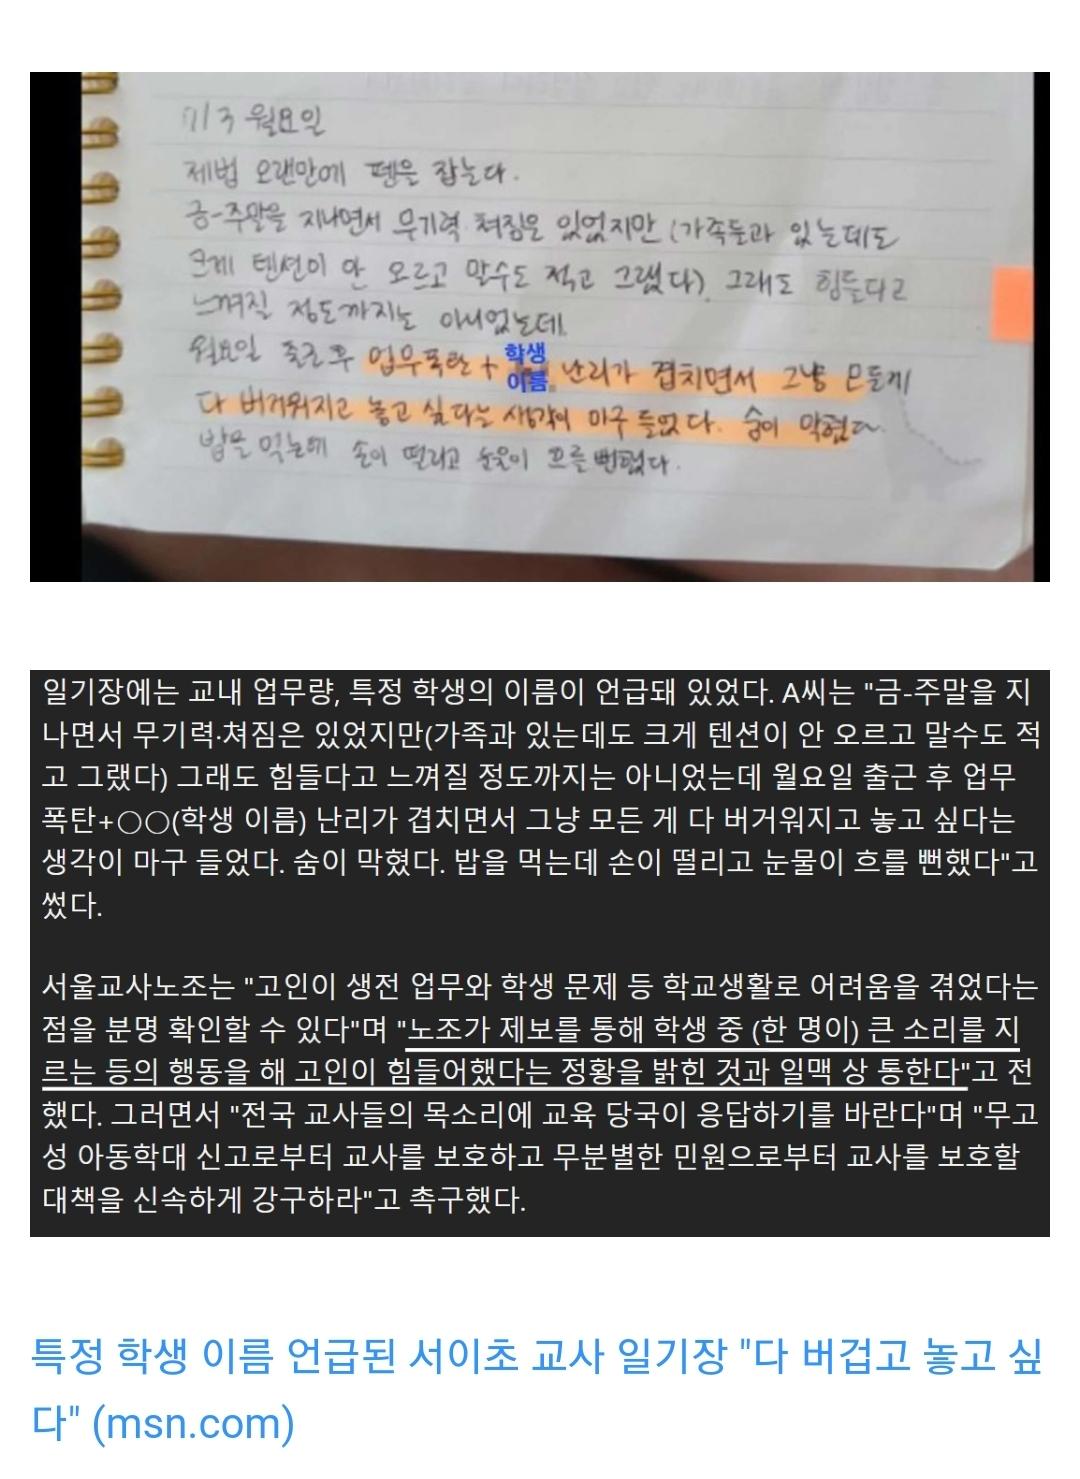 7/3 월요일
제법 오랜만에 펜을 잡는다.
금-주말을 지나면서 무기력·쳐짐은 있었지만 (가족들과 있는데도
크게 텐션이 안 오르고 말수도 적고 그랬다). 그래도 힘들다고
느껴질 정도까지는 아니었는데
월요일 출근 후 업무폭탄 + 학생 이름 난리가 겹치면서 그냥 모든게
다 버거워지고 놓고 싶다는 생각이 마구 들었다. 숨이 막혔다.
밥을 먹는데 손이 떨리고 눈물이 흐를 뻔했다.
일기장에는 교내 업무량, 특정 학생의 이름이 언급돼 있었다. A씨는 "금-주말을 지
나면서 무기력·쳐짐은 있었지만(가족과 있는데도 크게 텐션이 안 오르고 말수도 적
고 그랬다) 그래도 힘들다고 느껴질 정도까지는 아니었는데 월요일 출근 후 업무
폭탄+○○(학생 이름) 난리가 겹치면서 그냥 모든 게 다 버거워지고 놓고 싶다는
생각이 마구 들었다. 숨이 막혔다. 밥을 먹는데 손이 떨리고 눈물이 흐를 뻔했다"고
썼다.
서울교사노조는 "고인이 생전 업무와 학생 문제 등 학교생활로 어려움을 겪었다는
점을 분명 확인할 수 있다"며 "노조가 제보를 통해 학생 중 (한 명이) 큰 소리를 지
르는 등의 행동을 해 고인이 힘들어했다는 정황을 밝힌 것과 일맥 상 통한다"고 전
했다. 그러면서 "전국 교사들의 목소리에 교육 당국이 응답하기를 바란다"며 "무고
성 아동학대 신고로부터 교사를 보호하고 무분별한 민원으로부터 교사를 보호할
대책을 신속하게 강구하라"고 촉구했다.
특정 학생 이름 언급된 서이초 교사 일기장 "다 버겁고 놓고 싶
다" (msn.com)